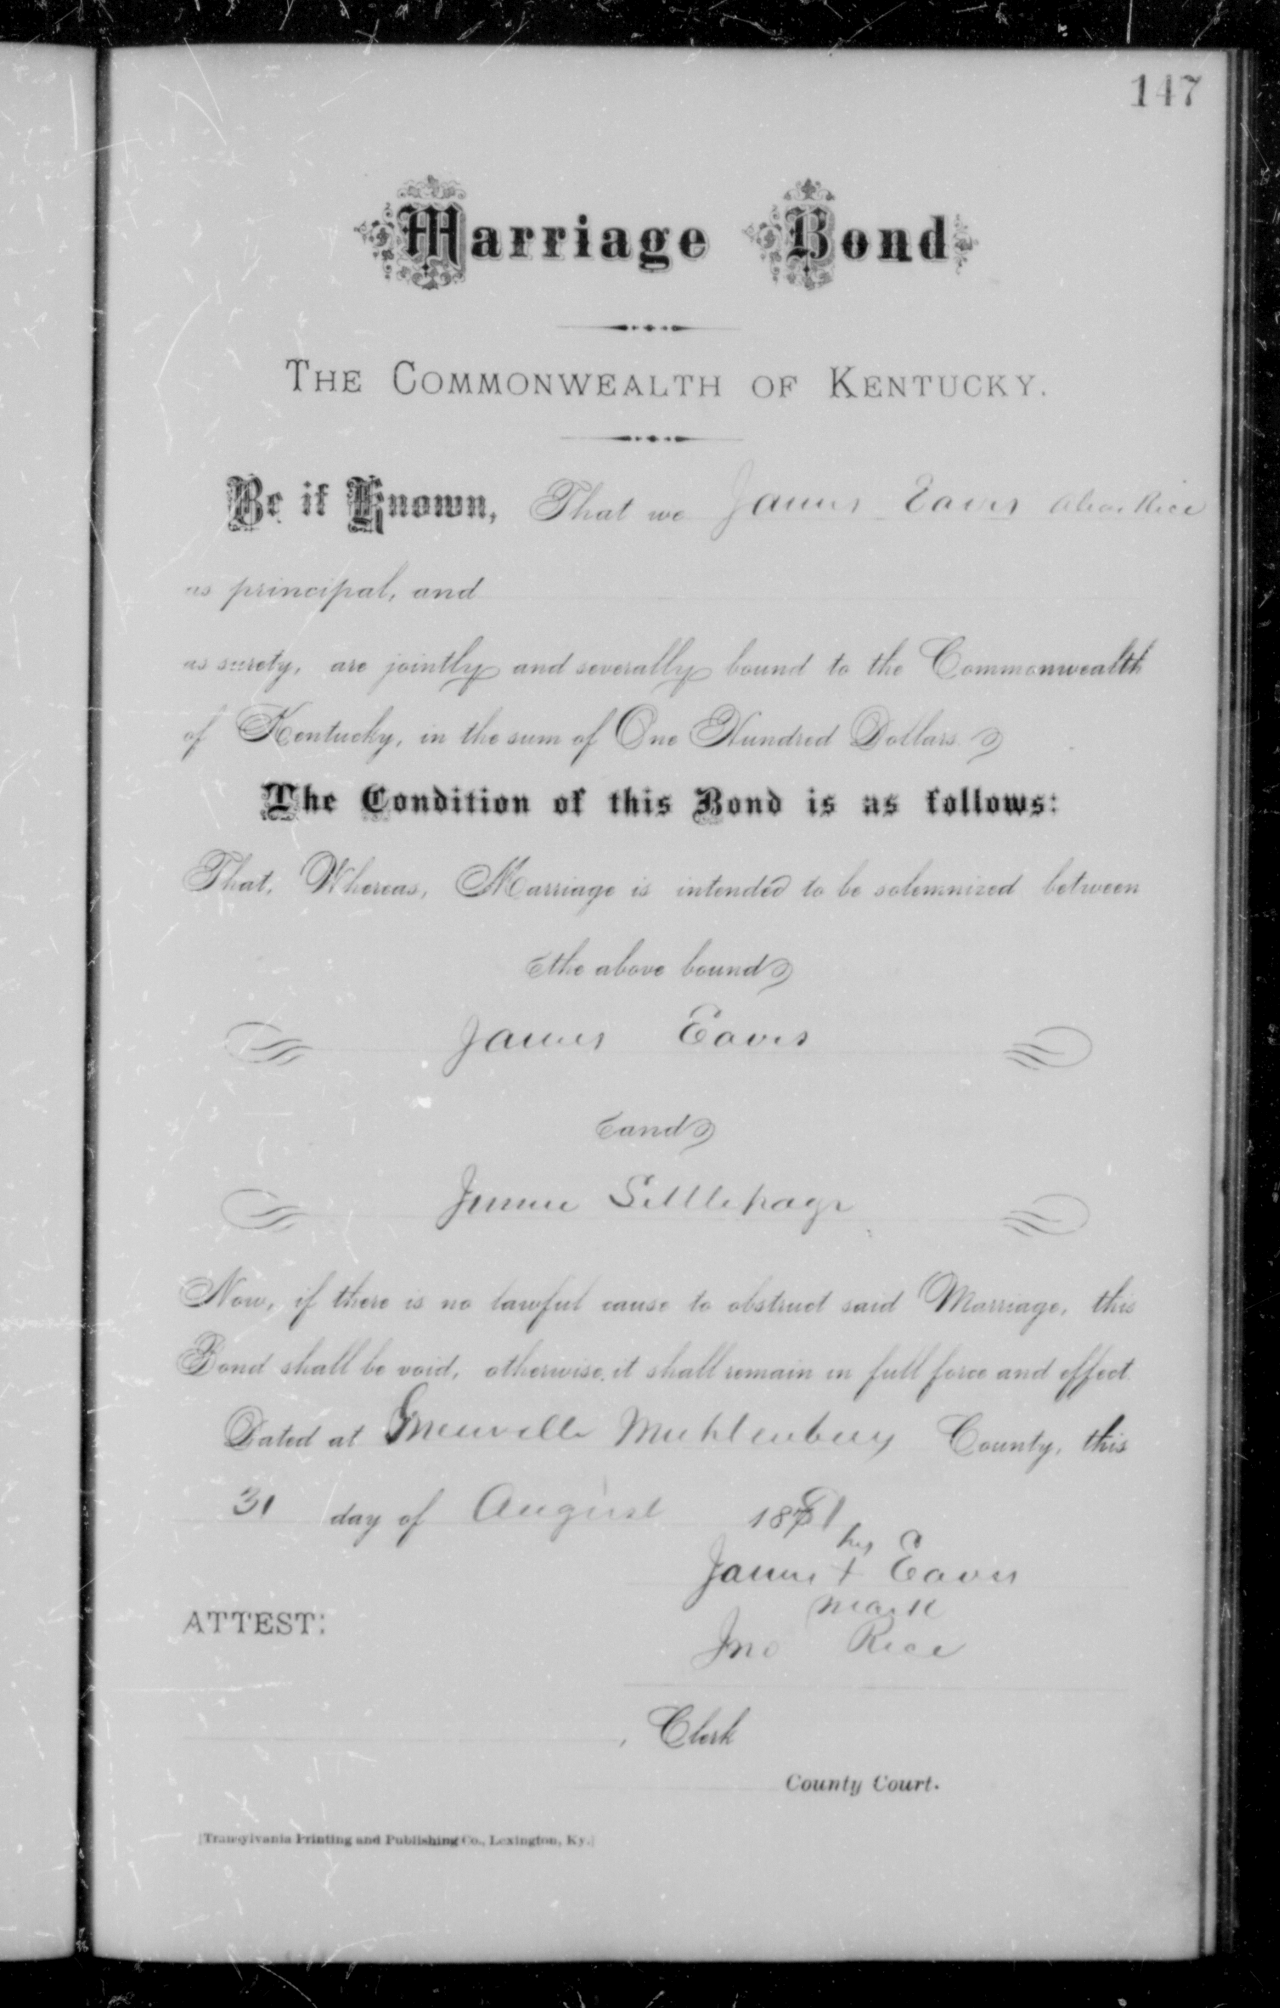 147
Marriage Bond
THE COMMONWEALTH OF KENTUCKY.
Be it Known, That we James Eaves Rice
as principal, and
as surety, are jointly and severally bound to the Commonwealth
of Kentucky, in the sum of One Hundred Dollars.
The Condition of this Bond is as follows:
That, Whereas, Marriage is intended to be solemnized between
the above bound
James Eaves
and
Jennie Littlepage
Now, if there is no lawful cause to obstruct said Marriage, this
Bond shall be void, otherwise, it shall remain in full force and effect.
Dated at Greenville Muhlenburg County, this
31 day of August 1881
his
James + Eaves
mark
ATTEST:
Jno Rice
, Clerk
County Court.
[Transylvania Printing and Publishing Co., Lexington, Ky.]